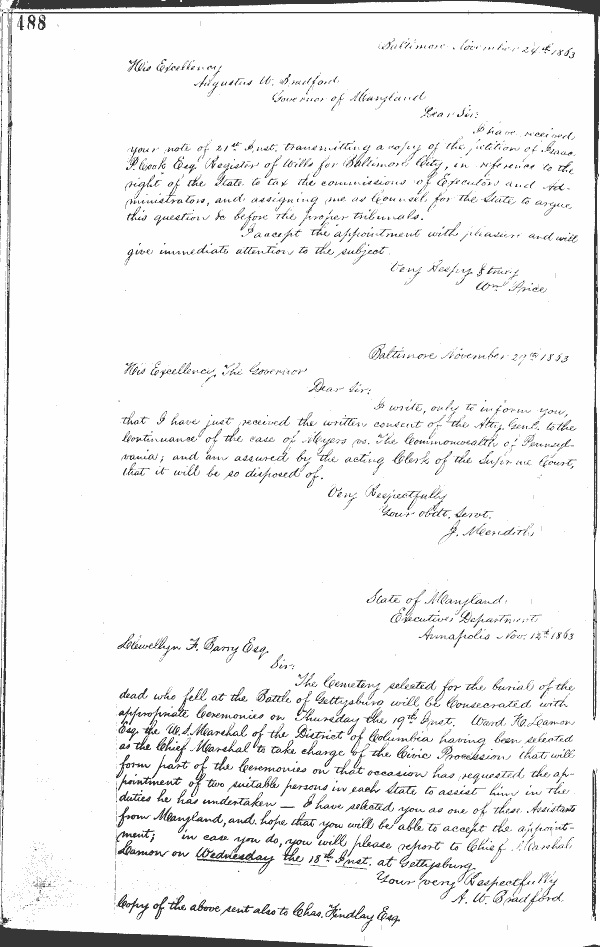 488
Baltimore November 24th 1863
His Excellency
Augustus W. Bradford
Governor of Maryland
Dear Sir:
I have received
your note of 21st Inst. transmitting a copy of the petition of Isaac
P. Cook Esq. Register of Wills for Baltimore City, in reference to the
right of the State to tax the commissions of Executors and Ad-
ministrators, and assigning me as Counsel for the State to argue
this question &c before the proper tribunals.
I accept the appointment with pleasure and will
give immediate attention to the subject.
Very Respy & truly
Wm. Price
Baltimore November 27th 1863
His Excellency, The Governor
Dear Sir:
I write, only to inform you,
that I have just received the written consent of the Atty. Genl. to the
Continuance of the case of Myers vs. The Commonwealth of Pennsyl-
vania; and am assured by the acting Clerk of the Supreme Court,
that it will be so disposed of.
Very Respectfully
Your obdt. Servt.
J. Meredith
State of Maryland.
Executive Department
Annapolis Nov. 12th 1863
Llewellyn F. Barry Esq.
Sir:
The Cemetery selected for the burial of the
dead who fell at the Battle of Gettysburg will be Consecrated with
appropriate Ceremonies on Thursday the 19th Inst. Ward H. Lamon
Esq. the U.S. Marshal of the District of Columbia having been selected
as the Chief Marshal to take charge of the Civic Procession that will
form part of the Ceremonies on that occasion has requested the ap-
pointment of two suitable persons in each State to assist him in the
duties he has undertaken — I have selected you as one of these Assistants
from Maryland, and hope that you will be able to accept the appoint-
ment; in case you do, you will please report to Chief Marshal
Lamon on Wednesday the 18th Inst. at Gettysburg.
Your very Respectfully
A. W. Bradford
Copy of the above sent also to Chas. Findlay Esq.